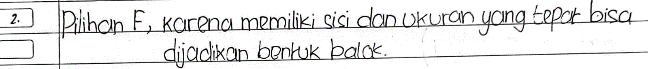 2. Pilihan F, karena memiliki sisi dan ukuran yang tepat bisa
dijadikan bentuk balok.